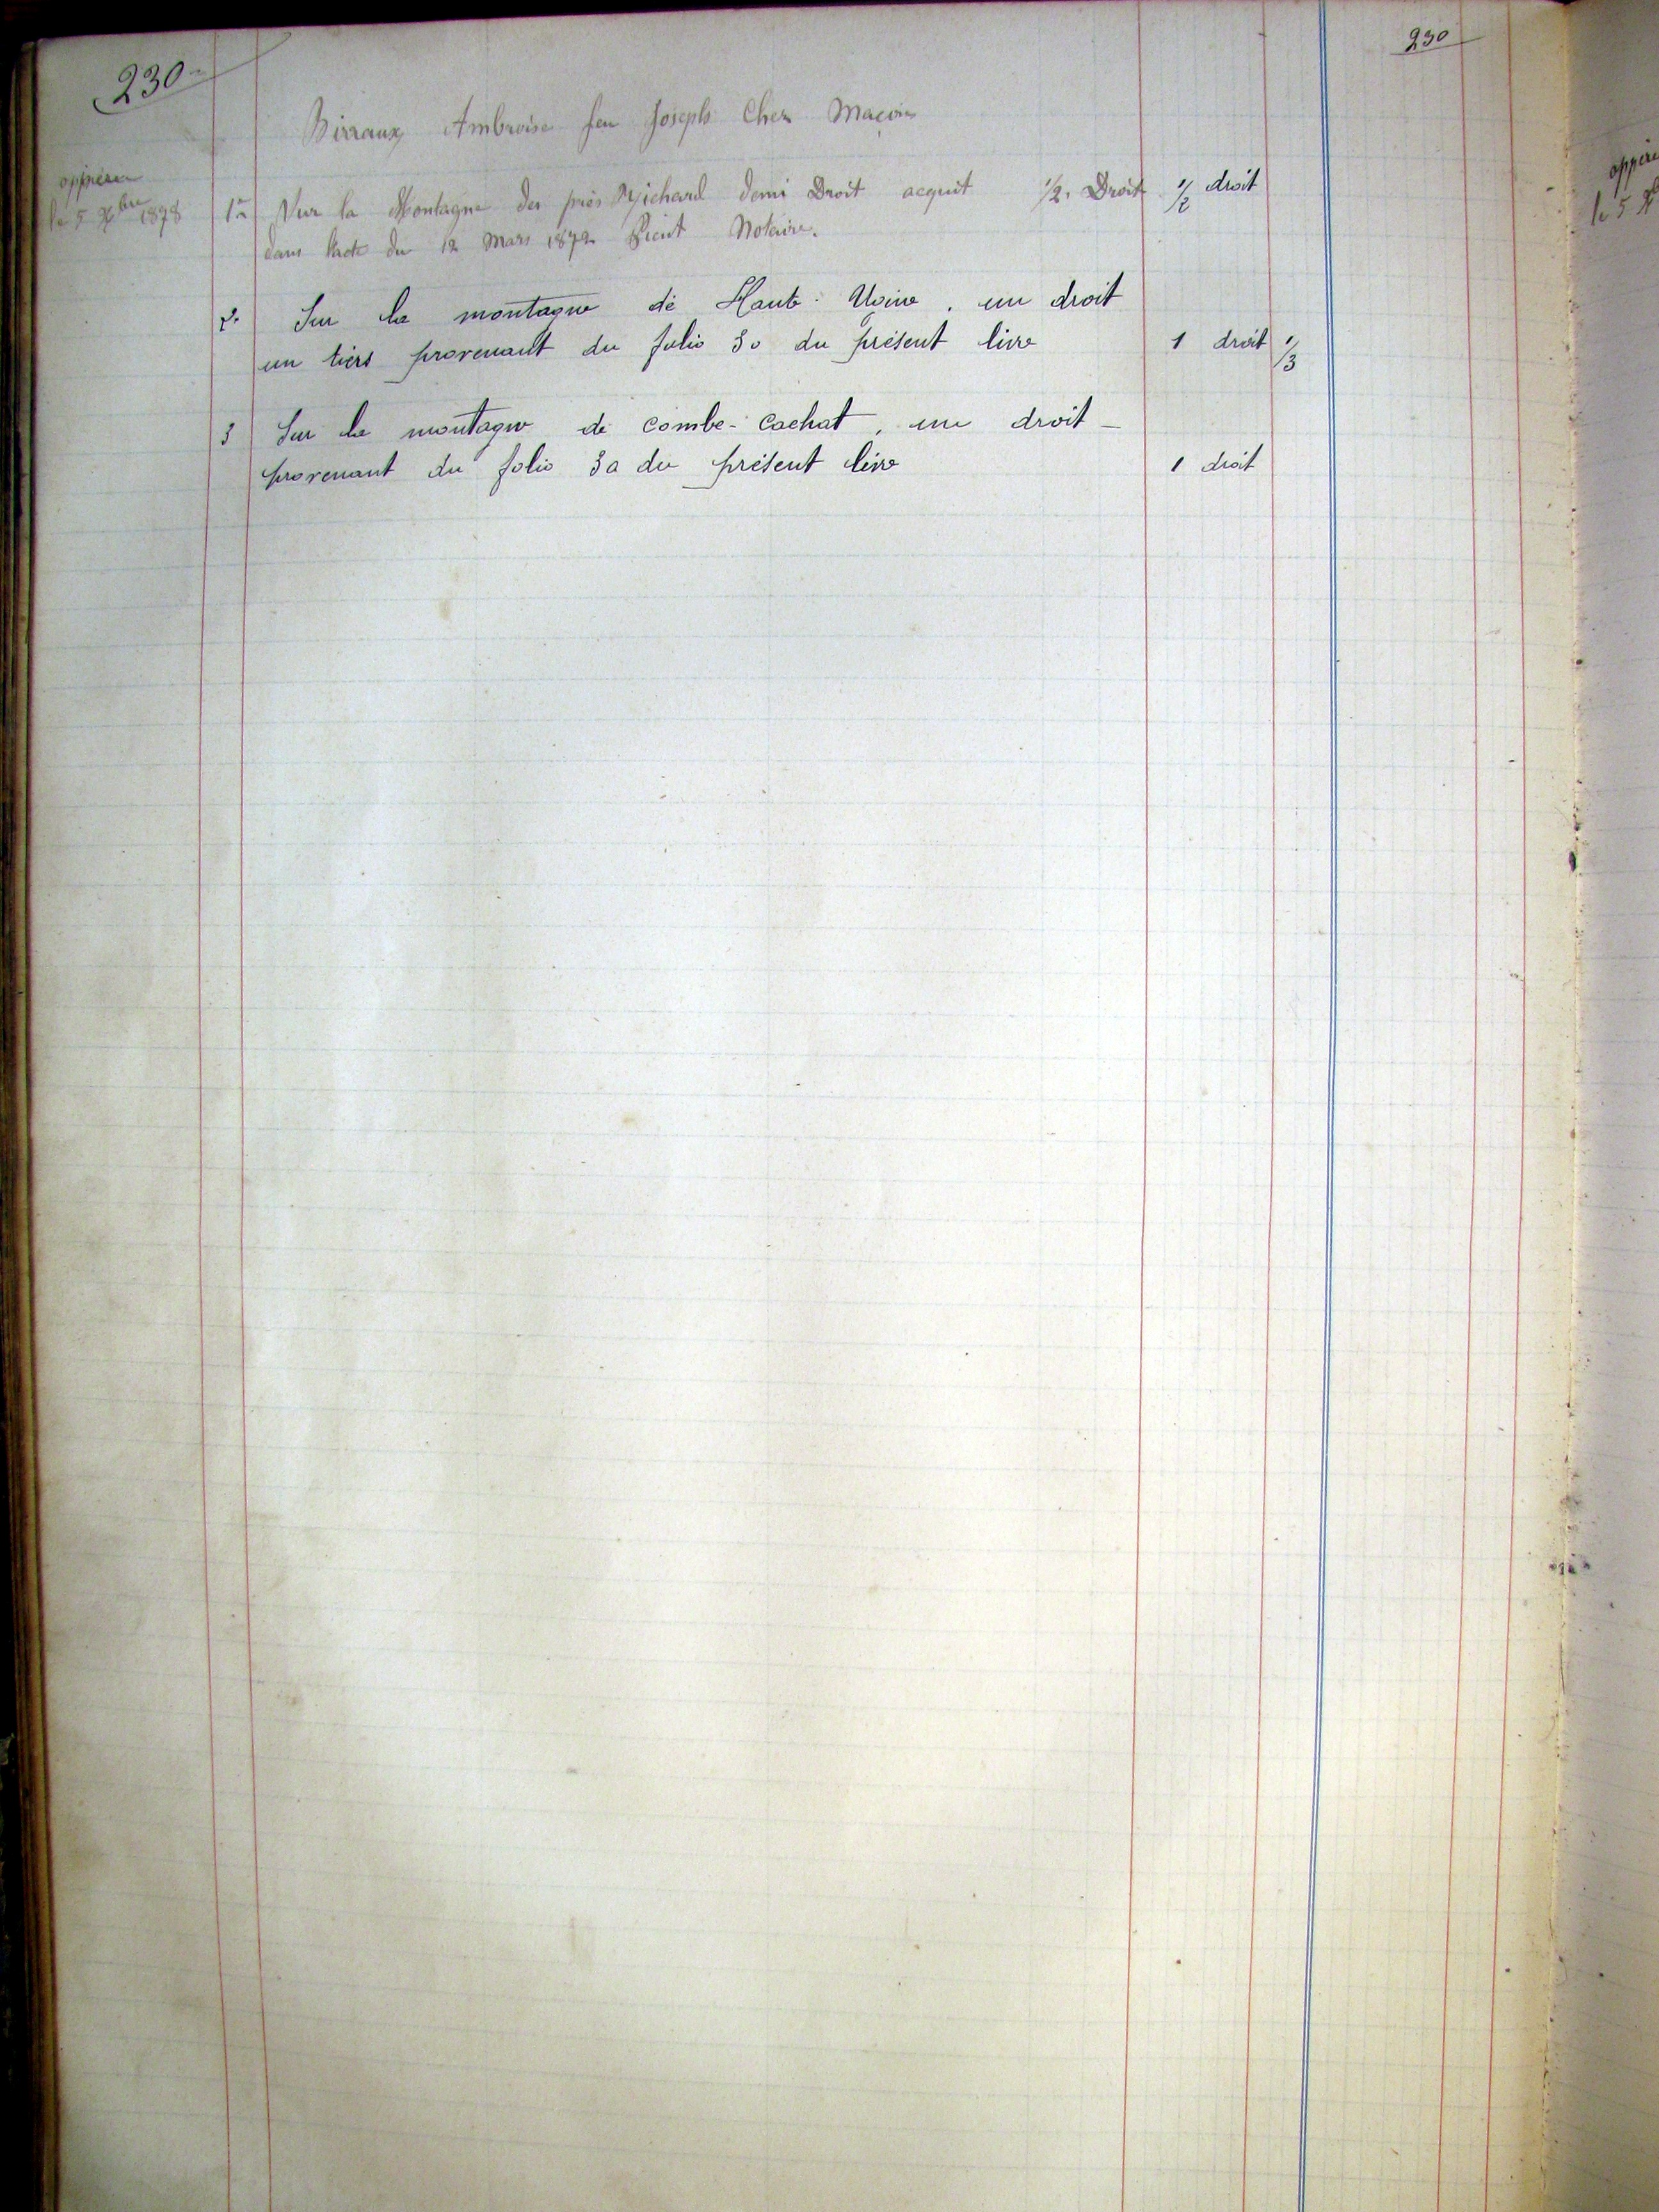 230
230
Birraux Ambroise feu Joseph Chez Maçon
le 5 Xbre 1878
1° Sur la Montagne des près Richard demi Droit acquit 1/2. Droit 1/2 droit
dans l'acte du 12 Mars 1872 Notaire.
2° Sur la montagne de Haute un droit
un tiers provenant du folio 30 du présent livre 1 droit 1/3
3 Sur la montagne de Combe-Cachat, un droit
provenant du folio 30 du présent livre 1 droit
le 5